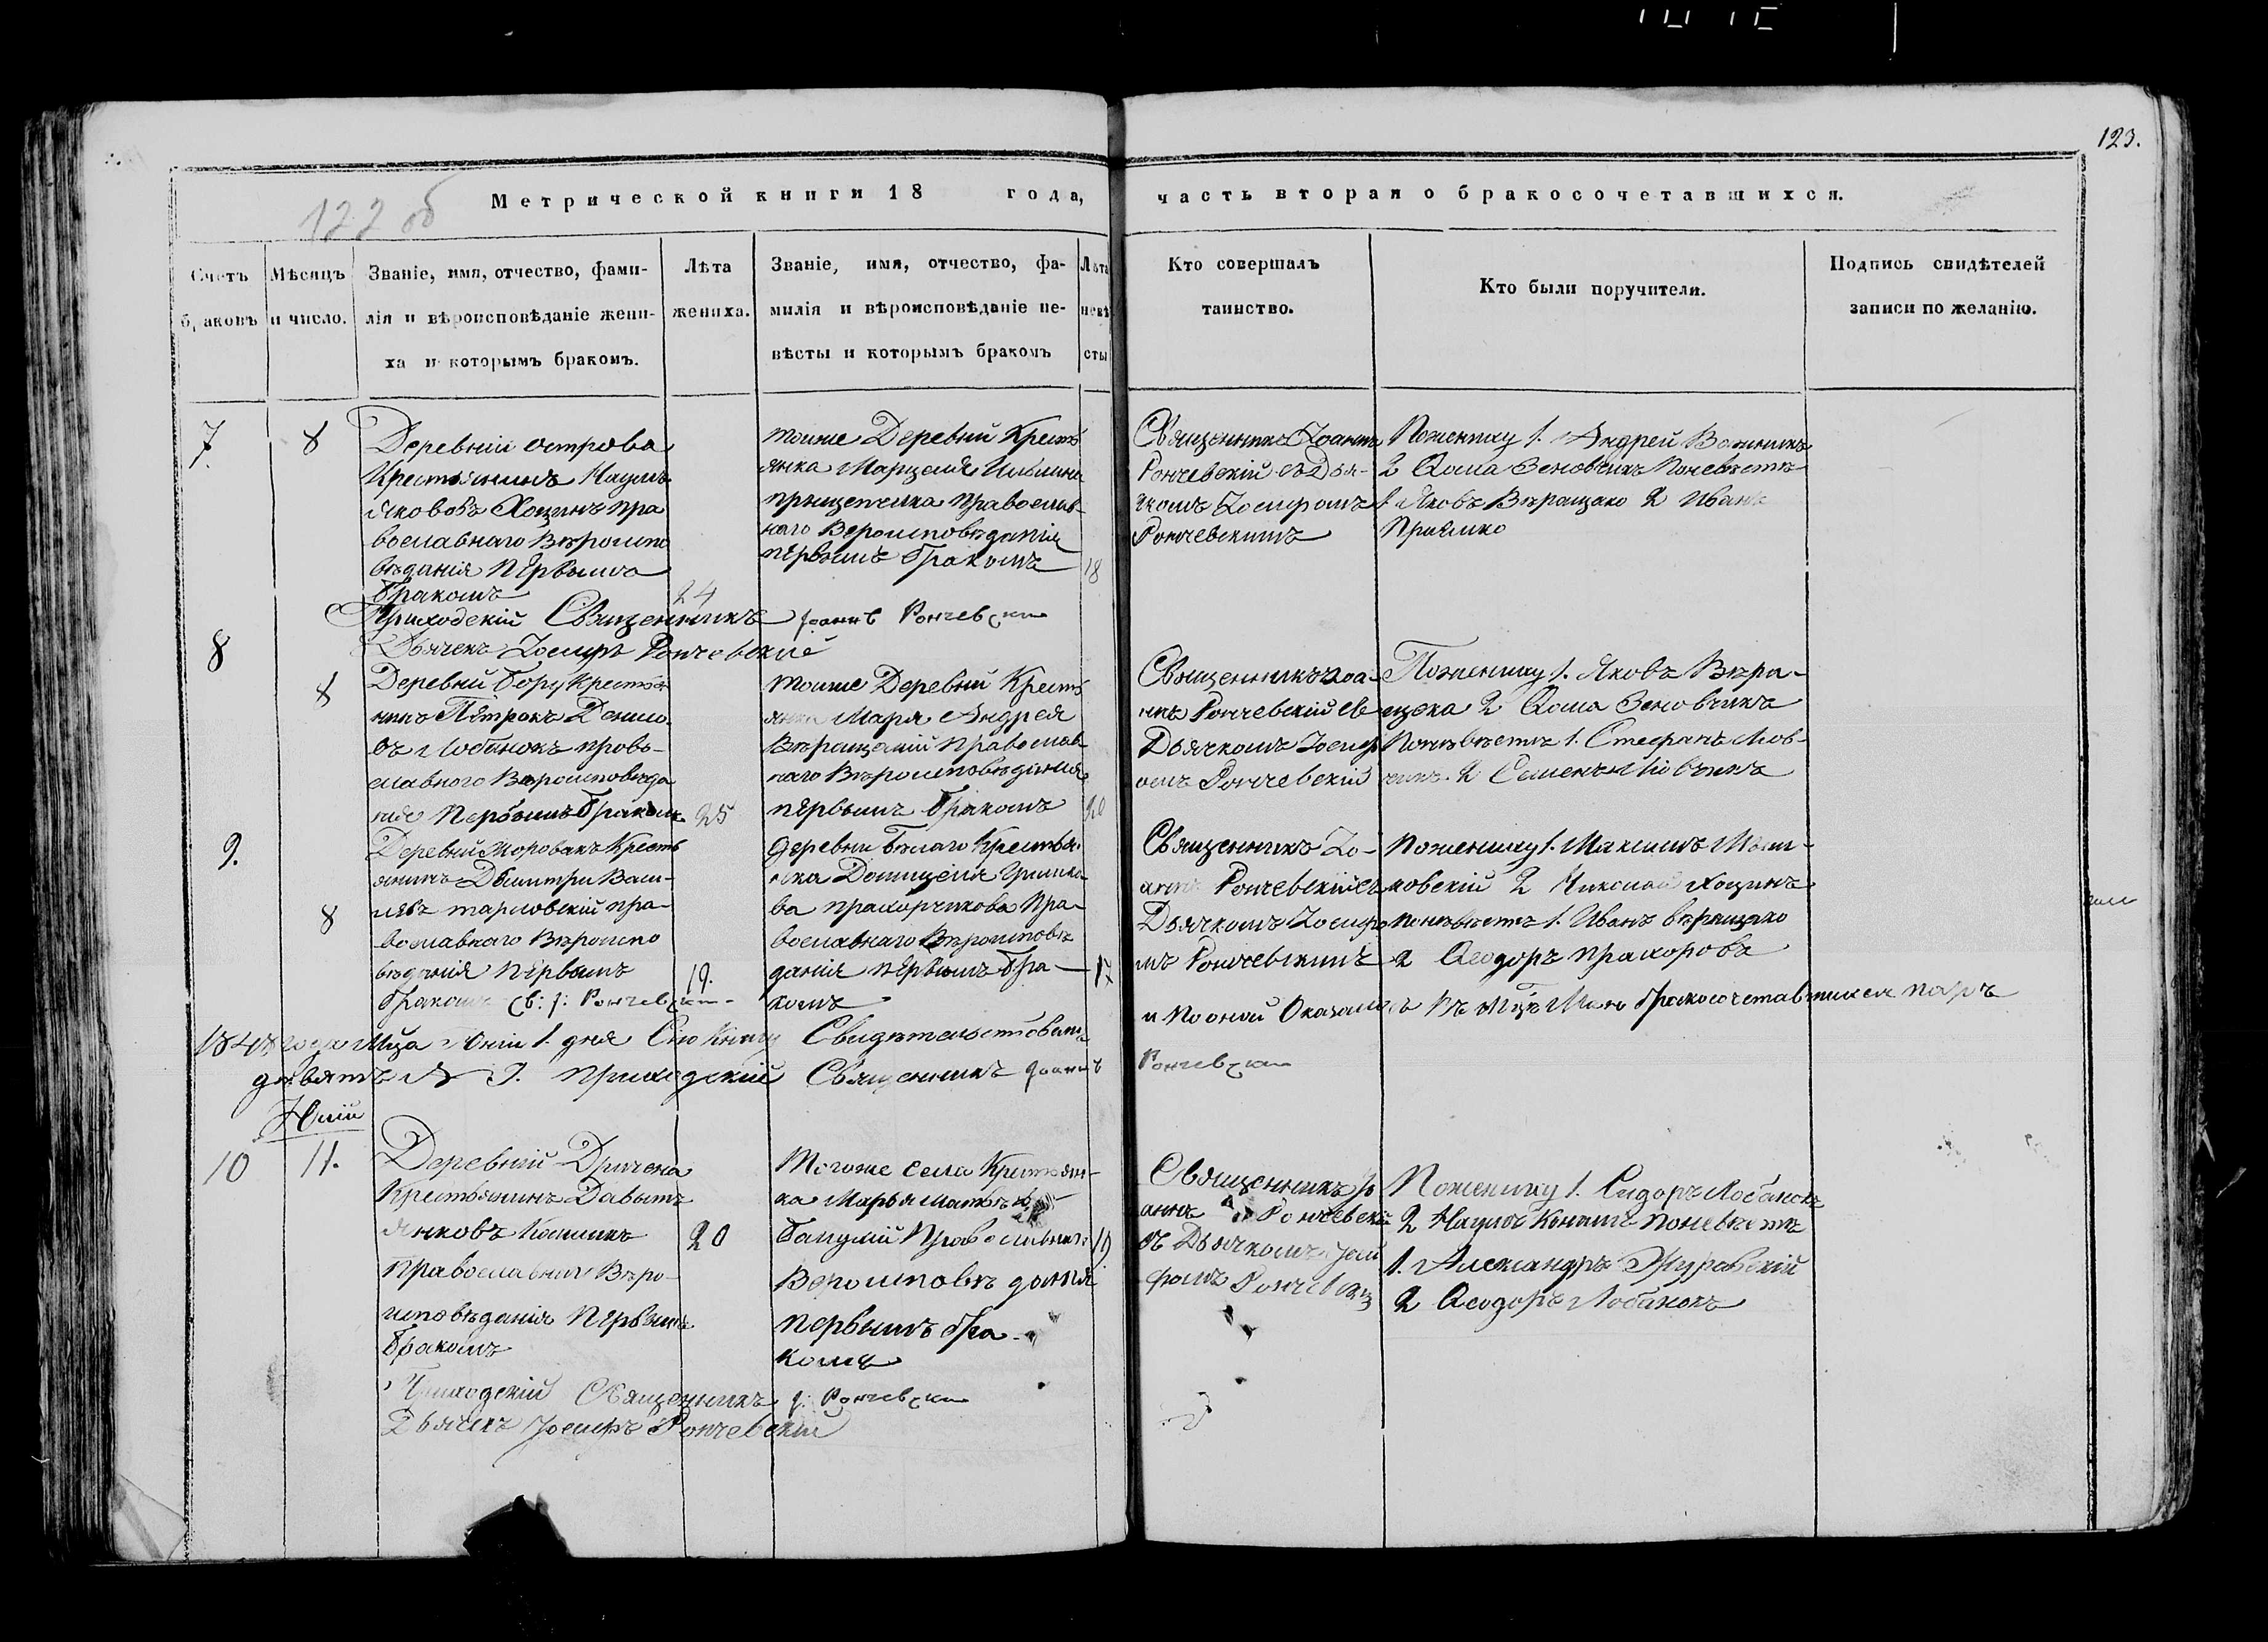 123.
122 об
Метрической книги 18 года, часть вторая о бракосочетавшихся.
Счетъ браковъ
Мѣсяцъ и число.
Званіе, имя, отчество, фами-
лія и вѣроисповѣданіе жени-
ха и которымъ бракомъ.
Лѣта
жениха.
Званіе, имя, отчество, фа-
милія и вѣроисповѣданіе не-
вѣсты и которымъ бракомъ
Лѣта
невѣ
сты
Кто совершалъ
таинство.
Кто были поручители.
Подпись свидѣтелей
записи по желанію.
7.
8
Деревніи острова
Крестьянинъ Наумъ
Якововъ Хоцинъ пра
вославнаго Вѣроиспо
вѣданія первымъ
бракомъ
24
тойже Деревни Кресть
янка Марцеля Ильина
прищепчика православ-
наго Вероисповѣданія
первымъ бракомъ
18
Священникъ Іоаннъ
Рончевскій съ Дья-
чкомъ Іосифомъ
Рончевскимъ
Поженику 1. Андрей Важникъ
2 Ѳома Зеновчикъ Поневѣстѣ
1 Яковъ Вѣращако 2 Иванъ
Приямко
Приходскій Священникъ Іоаннъ Рончевски
Дьячекъ Іосифъ Рончевскій
8
8
Деревни Бору Крестья
нинъ Пётрокъ Дени
въ Лобанокъ право-
славного Вѣроисповѣда
ние Первымъ бракомъ
25
тойже Деревни Кресть
янка Маря Андрея
Вѣращакій Православ
наго Вѣроисповѣдания
первымъ бракомъ
20
Священникъ Іоа-
ннъ Рончевскій съ
Дьячкомъ Іосиф
омъ Рончевскій
Поженику 1. Яковъ Вѣра-
щека 2 Ѳома Зеновчикъ
Поневѣстѣ 1. Стефанъ Мов-
чикъ 2 Семенъ Мовчикъ
9.
8
Деревни Моровакъ Кресть
янинъ Дѣмитри Васи-
левъ тарловскій пра-
вославнаго Вѣроиспо
вѣданія первымъ
бракомъ св: І: Рончевски
19.
деревни Бѣлаго Крестья
нка Домицеля Гришка
ва прахорчикова Пра-
вославнаго Вѣроисповѣ
данія первымъ бра-
комъ
17
Священникъ Іо-
аннъ Рончевскій съ
Дьячкомъ Іосифо
мъ Рончевскимъ
Поженику 1. Максимъ
ковскій 2 Николай Хоцинъ
Поневѣстѣ 1. Иванъ вѣращако
2 Ѳеодоръ прахоровъ
1848 года Мца Юніи 1. дня Сію Книгу Свидѣтельствовалъ и Пооной Оказалось Въ Мцѣ Маю бракосочетавшихся паръ
девять № 9. Приходскій Священникъ Іоаннъ Рончевски
Юлій
10
11.
Деревній Дричена
Крестьянинъ Давытъ
Янковъ Конникъ
Православнаго Вѣро-
исповѣданія Первымъ
бракомъ
20
Тогоже Села Крестьян-
ка Марья Матвѣева
бацукій Православнаго
Вероисповѣ дания
первымъ бра-
комъ
19
Священникъ Іо
аннъ Рончевскі
съ Дьячкомъ Іоси
фомъ Рончевски
Поженику 1. Сидоръ Лобанокъ
2 Наумъ Конникъ Поневѣстѣ
1. Александръ Журавскій
2 Ѳеодоръ Лобанокъ
Приходскій Священникъ І: Рончевски
Дьячекъ Іосифъ Рончевскій